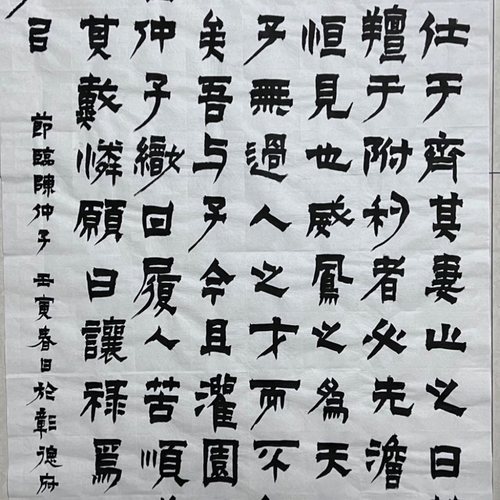 仕于齊其妻止之曰
羶于附利者必先澹
恒見也威鳳之為天
子無過人之才而不
矣吾与子今且灌園
仲子繳曰履人苦順
其戴憐願曰讓祿為
召
節臨陳仲子 壬寅春日於彰德府